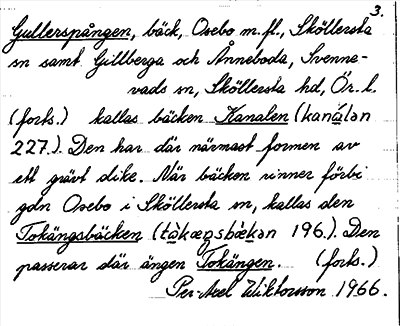 3.
Gullerspången, bäck, Osebo m.fl., Sköllersta
sn samt Gillberga och Ånneboda, Svenne-
vads sn, Sköllersta hd, Ör. l.
(forts.) kallas bäcken Kanalen (kanálən
227.). Den har där närmast formen av
ett grävt dike. När bäcken rinner förbi
gdn Osebo i Sköllersta sn, kallas den
Tokängsbäcken (tàkæŋsbæ̀kən 196.). Den
passerar där ängen Tokängen. (forts.)
Per-Axel Wiktorsson 1966.